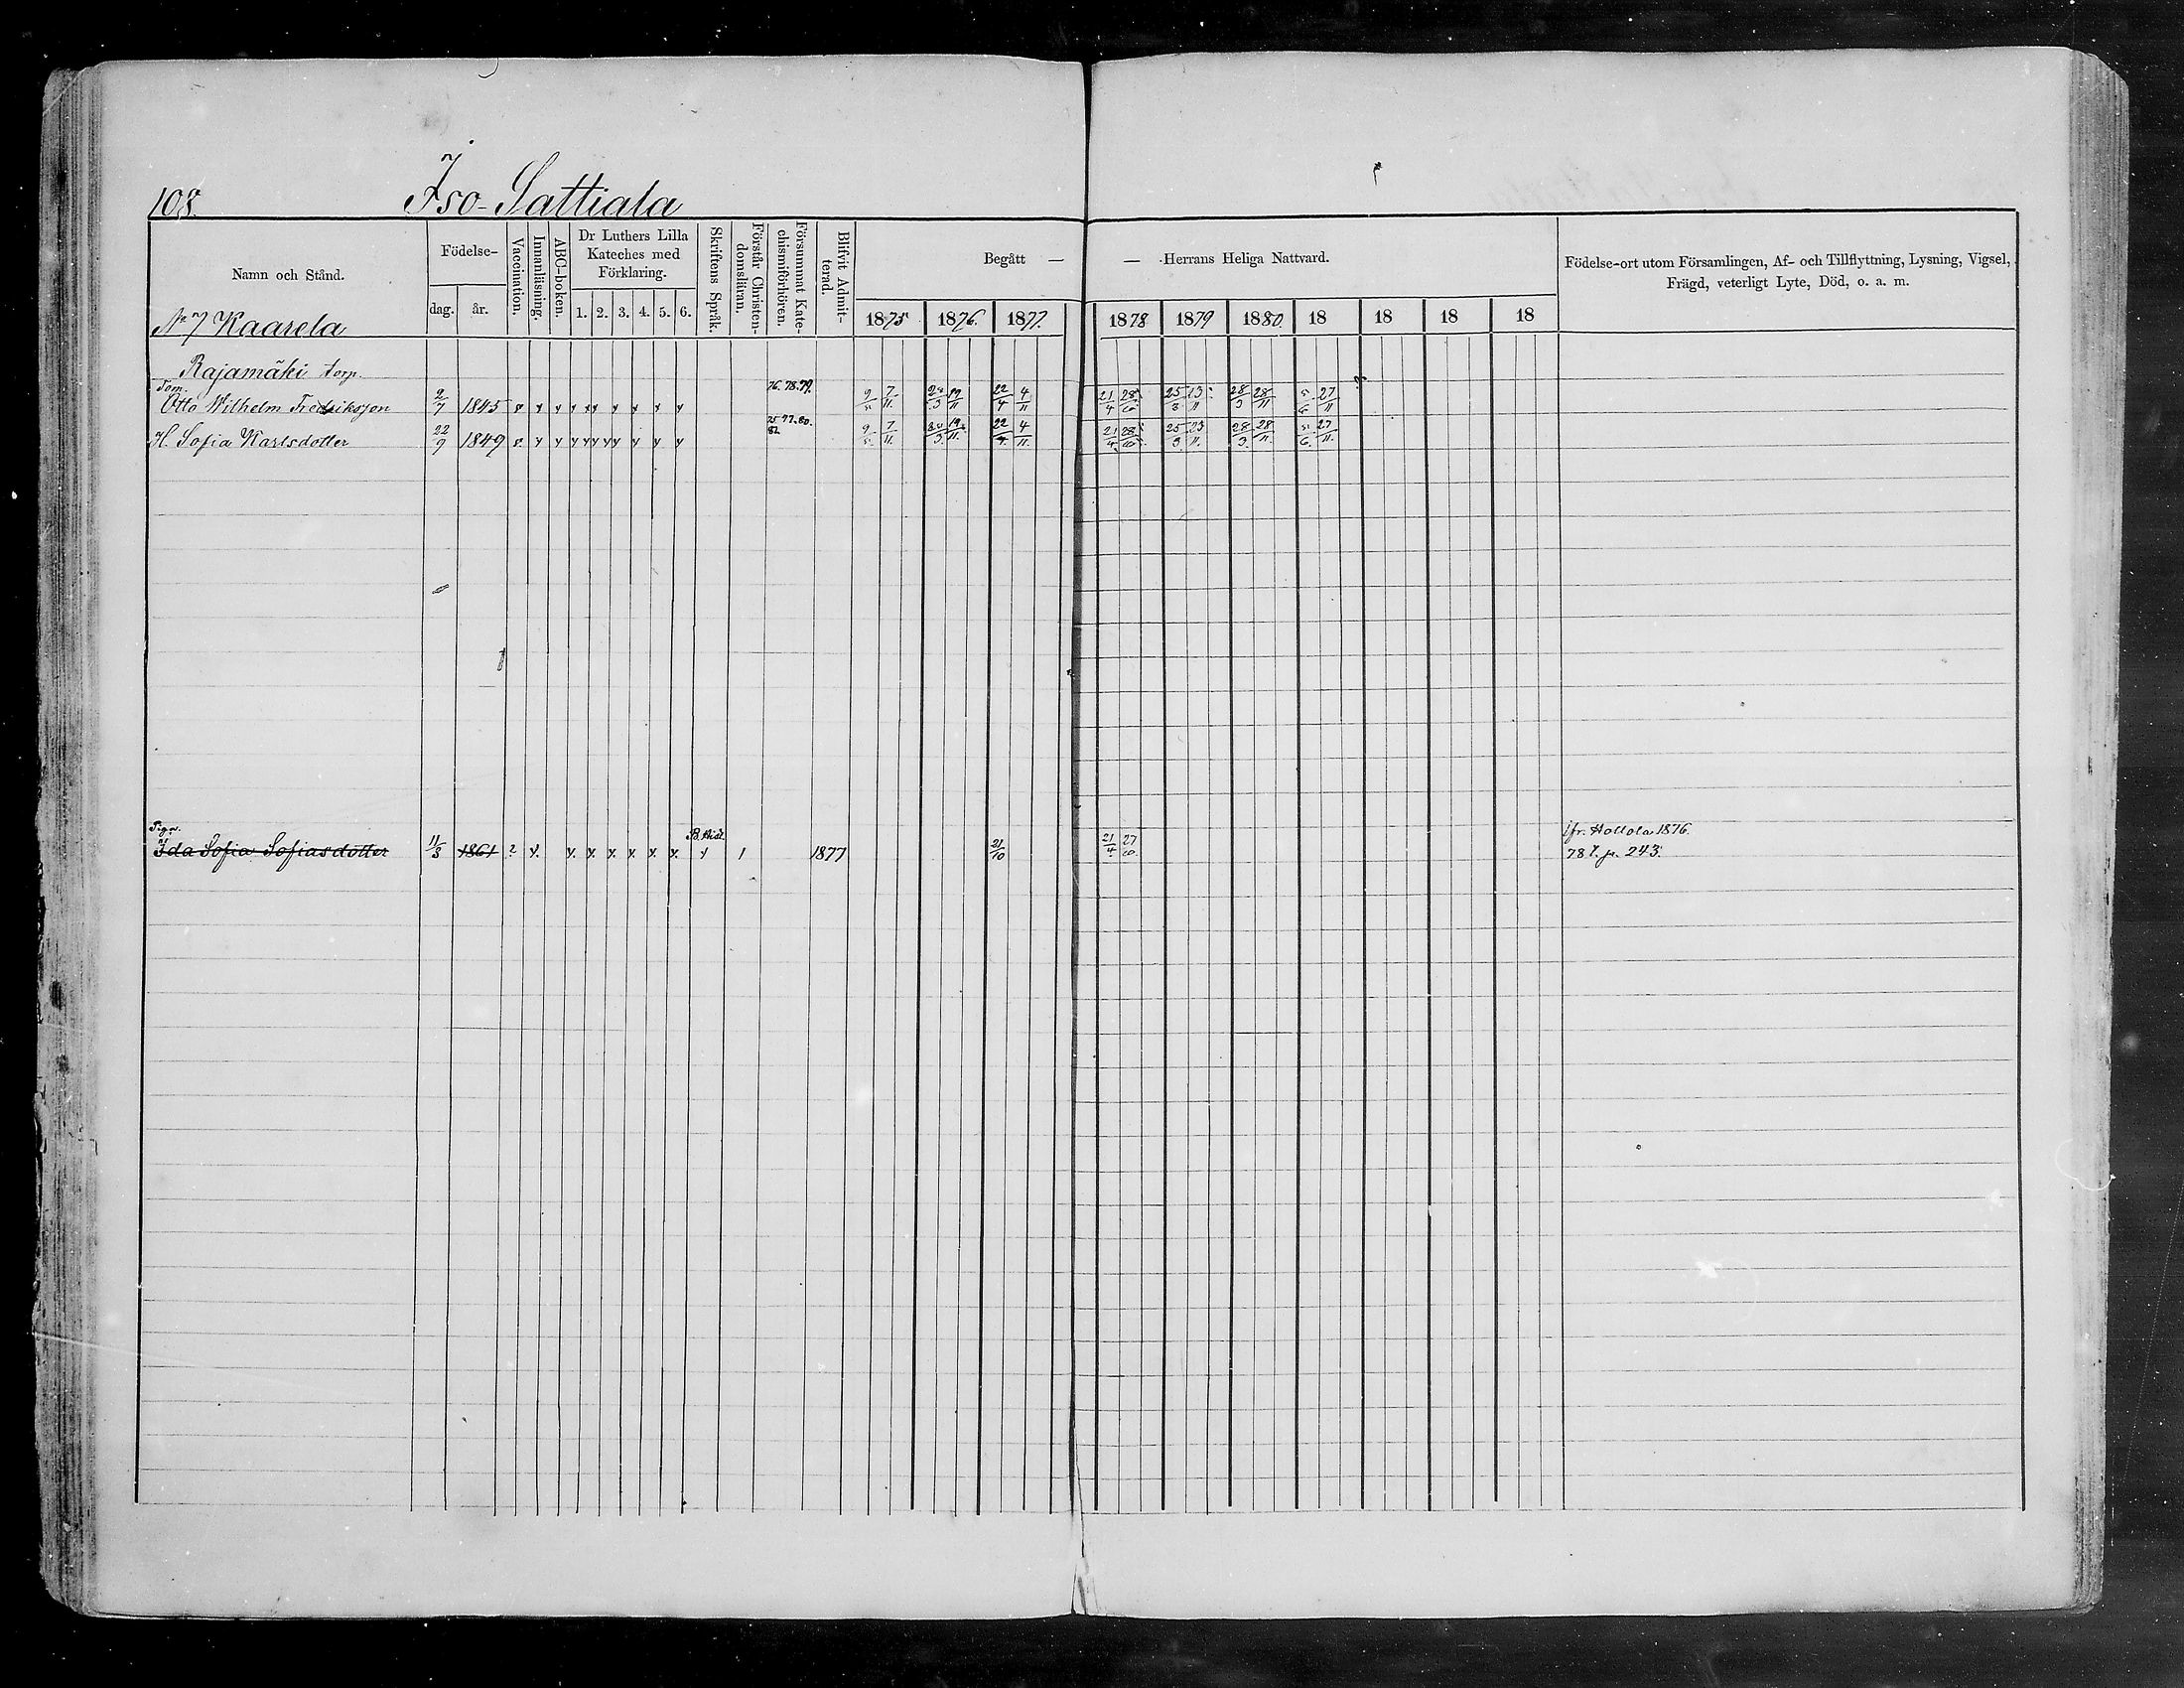 108. Iso-Sattiala
Namn och Stånd.
Födelse-
dag. år.
Vaccination.
Innanläsning.
ABC-boken.
Dr Luthers Lilla
Kateches med
Förklaring.
1. 2. 3. 4. 5. 6.
Skriftens Språk.
Förstår Christen-
domsläran.
Försummat Kate-
chismiförhören.
Blifvit Admit-
terad.
Begått — — Herrans Heliga Nattvard.
1875 1876. 1877. 1878 1879 1880. 18 18 18 18
Födelse-ort utom Församlingen, Af- och Tillflyttning, Lysning, Vigsel,
Frägd, veterligt Lyte, Död, o. a. m.
No 7 Kaarela
Rajamäki torp.
Torp.
76. 78. 79.
Otto Wilhelm Fredriksson 2/7 1845 v y y y y y y y y 9/5 7/11. 22/4 4/11 21/4 28/10 25/3 28/3 28/11 5/6 27/11
75 77. 80.
H. Sofia Karlsdotter 22/9 1849 v. y y y y y y y y 9/5. 7/11. 22/4. 4/11. 21/4. 28/10. 25/3. 23/11. 28/3. 28/11. 5/6. 27/11.
Piga.
B. Hist.
Ida Sofia Sofiasdotter 11/3 1861 ? y. y. y. y. y. y. y. y 1 1877 21/10 21/4. 27/10.
ifr. Hollola 1876.
78 t. p. 243.